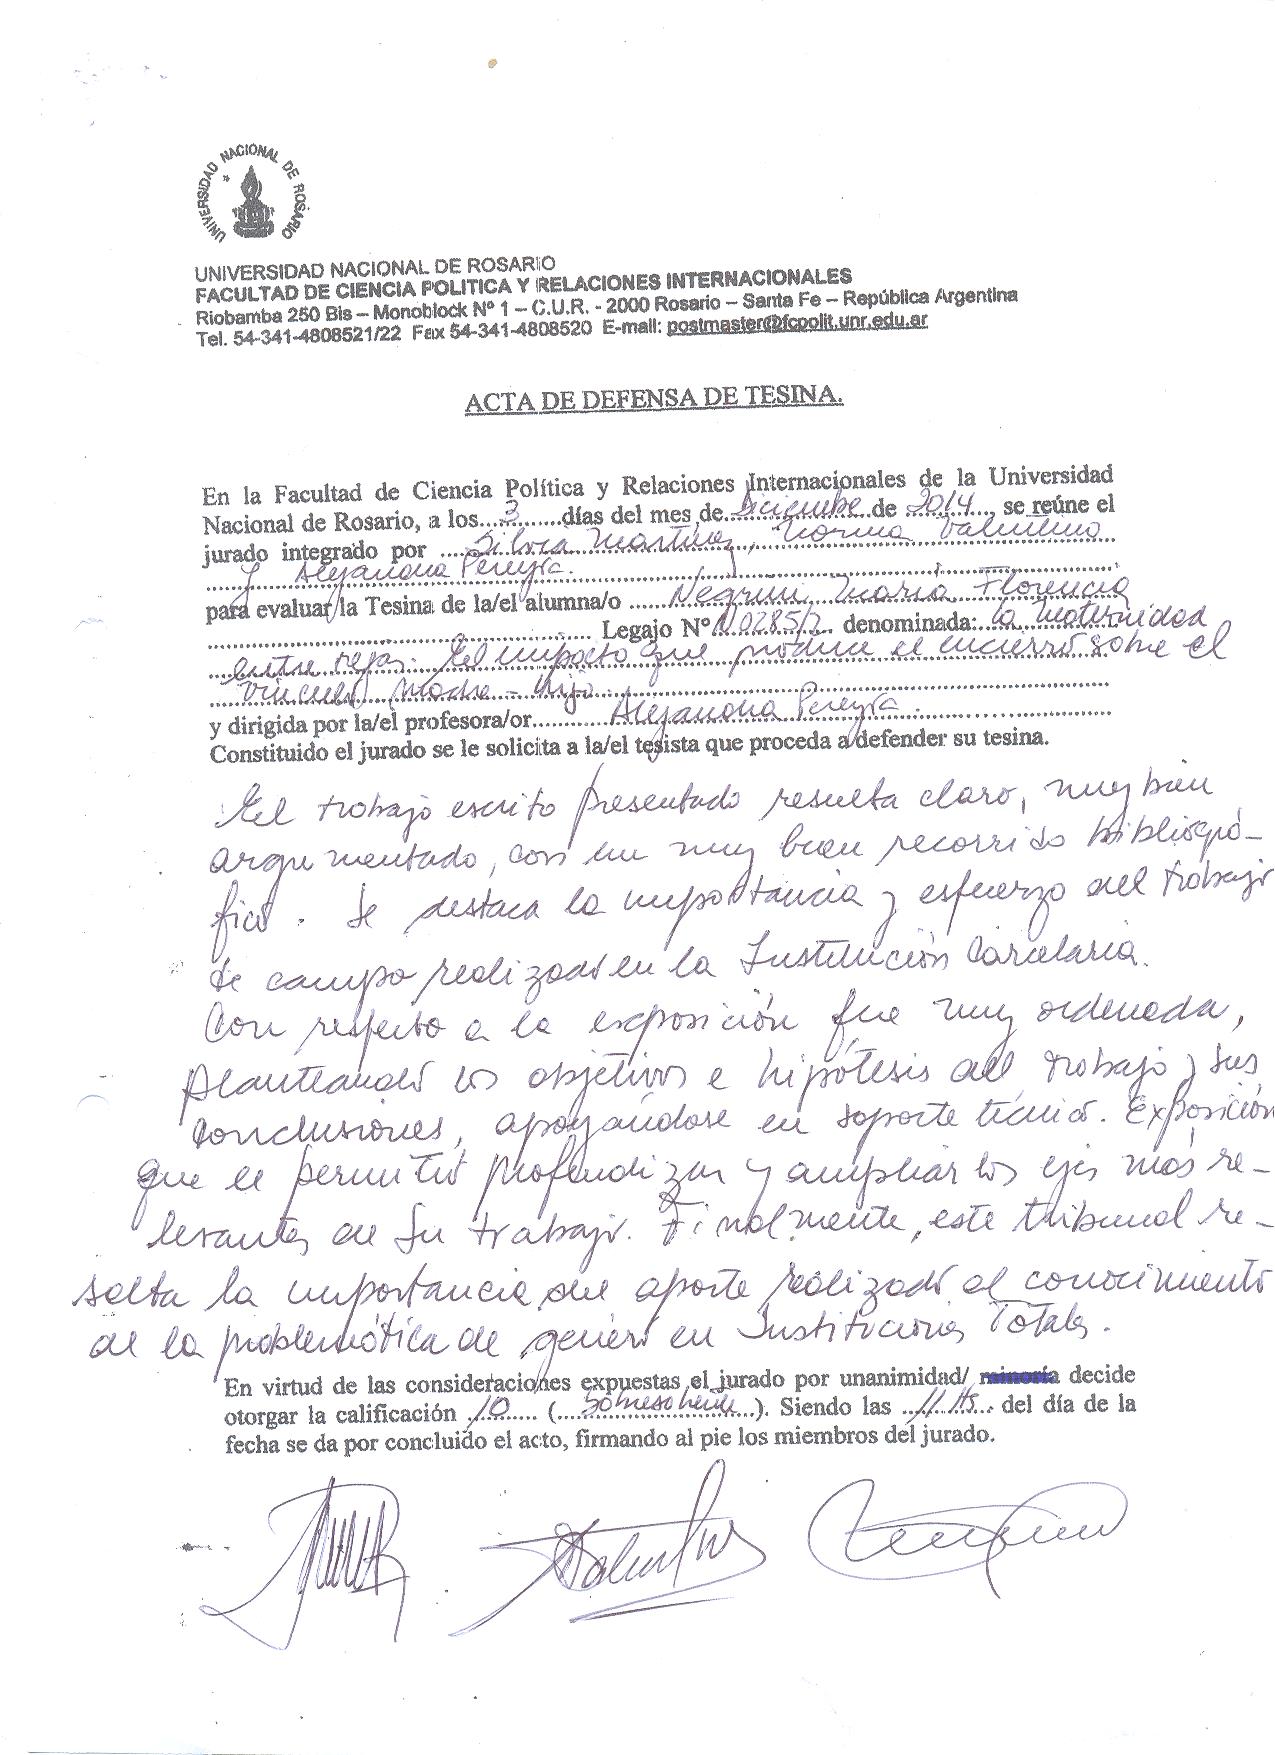 UNIVERSIDAD NACIONAL DE ROSARIO
UNIVERSIDAD NACIONAL DE ROSARIO
FACULTAD DE CIENCIA POLITICA Y RELACIONES INTERNACIONALES
Riobamba 250 Bis – Monoblock Nº 1 – C.U.R. - 2000 Rosario – Santa Fe – República Argentina
Tel. 54-341-4808521/22 Fax 54-341-4808520 E-mail: postmaster@fcpolit.unr.edu.ar
ACTA DE DEFENSA DE TESINA.
En la Facultad de Ciencia Política y Relaciones Internacionales de la Universidad
Nacional de Rosario, a los...3......días del mes de Diciembre de 2014, se reúne el
jurado integrado por Silvia Martínez, Norma Valentino
y Alejandra Pereyra.
para evaluar la Tesina de la/el alumna/o Negrini María Florencia
Legajo Nº N0285/2 denominada: La maternidad
entre rejas. El impacto que produce el encierro sobre el
vínculo madre - hijo.
y dirigida por la/el profesora/or Alejandra Pereyra.
Constituido el jurado se le solicita a la/el tesista que proceda a defender su tesina.
El trabajo escrito presentado resulta claro, muy bien
argumentado, con un muy buen recorrido bibliográ-
fico. Se destaca la importancia y esfuerzo del trabajo
de campo realizado en la Institución Carcelaria.
Con respecto a la exposición fue muy ordenada,
planteando los objetivos e hipótesis del trabajo y sus
conclusiones, apoyándose en soporte técnico. Exposición
que le permitió profundizar y ampliar los ejes más re-
levantes de su trabajo. Finalmente, este tribunal re-
salta la importancia del aporte realizado al conocimiento
de la problemática de género en Instituciones Totales.
En virtud de las consideraciones expuestas el jurado por unanimidad/ minoría decide
otorgar la calificación 10 (Sobresaliente). Siendo las 11 hs. del día de la
fecha se da por concluido el acto, firmando al pie los miembros del jurado.